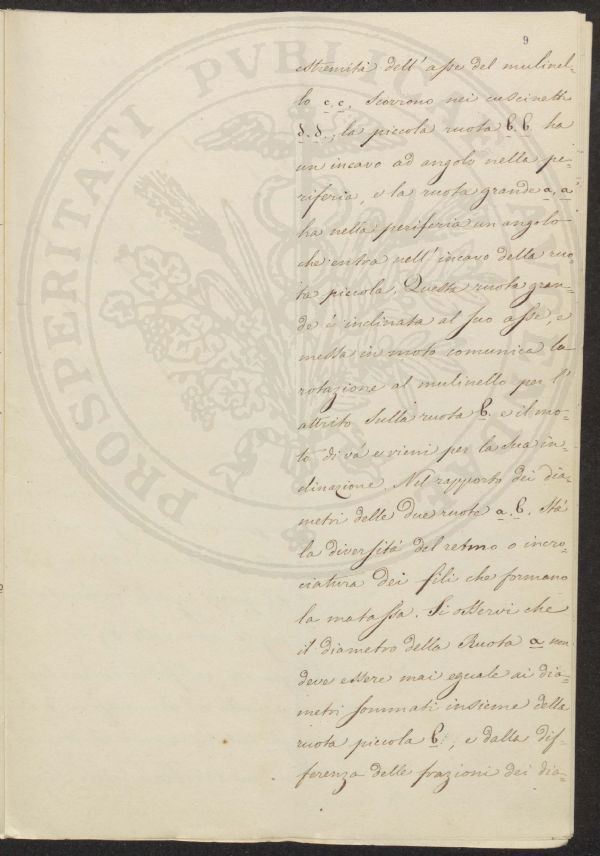 9
estremità dell' asse del mulinel-
lo c, c, scorrono nei cuscinetti
d. d., la piccola ruota b. b ha
un incavo ad angolo nella pe-
riferia, e la ruota grande a, a
ha nella periferia un angolo
che entra nell' incavo della ruo-
ta piccola. Questa ruota gran-
de è inclinata al suo asse, e
messa in moto comunica la
rotazione al mulinello per l'
attrito sulla ruota b. e il mo-
to di vá e vieni per la sua in-
clinazione. Nel rapporto dei dia-
metri delle due ruote a. b. stá
la diversitá del retmo o incro-
ciatura dei fili che formano
la matassa. Si osservi che
il diametro della Ruota a non
deve essere mai eguale ai dia-
metri sommati insieme delle
ruota piccola b., e dalla dif-
ferenza delle frazioni dei dia-
PROSPERITATI PVBLICAE